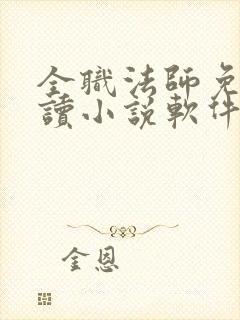 全職法師免
讀小説軟件
金恩